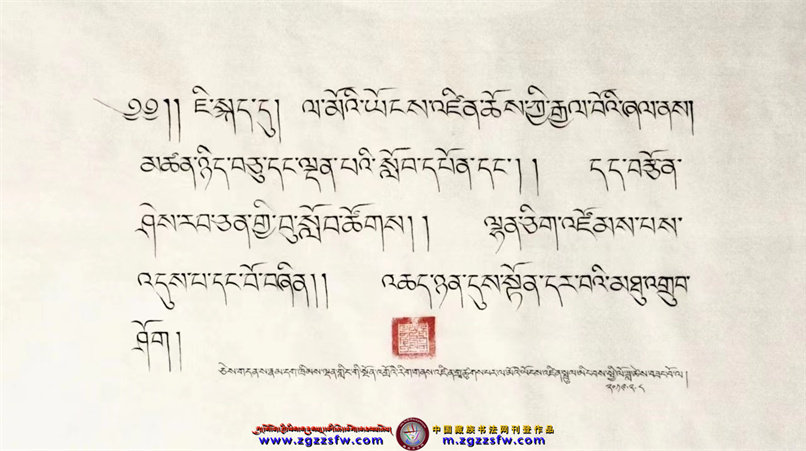 ༄༅།། ཇི་སྐད་དུ། ལ་མོའི་ཡོངས་འཛིན་ཆོས་ཀྱི་རྒྱལ་པོའི་ཞལ་ནས།
མཚན་ཉིད་བཅུ་དང་ལྡན་པའི་སློབ་དཔོན་དང་།། དད་བརྩོན་
ཤེས་རབ་ཅན་གྱི་བུ་སློབ་ཚོགས།། ལྷན་ཅིག་འཛོམས་པས་
འདུས་པ་དང་པོ་བཞིན།། འཆད་ཉན་དུས་སྟོན་དར་བའི་མཐུ་འགྲུབ་
ཤོག།
༢༠༡༩.༢.༨
中国藏族书法网刊登作品
www.zgzzsfw.com m.zgzzsfw.com